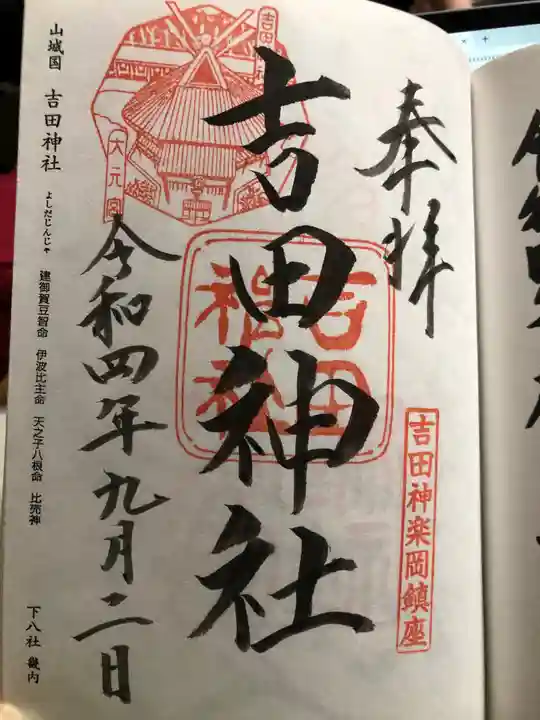 奉拝
吉田神楽岡鎮座
吉田神社
吉田
神社
吉田神社
大元宮
令和四年九月二日
山城国 吉田神社 よしだじんじゃ 建御賀豆智命 伊波比主命 天之子八根命 比売神 下八社 畿内